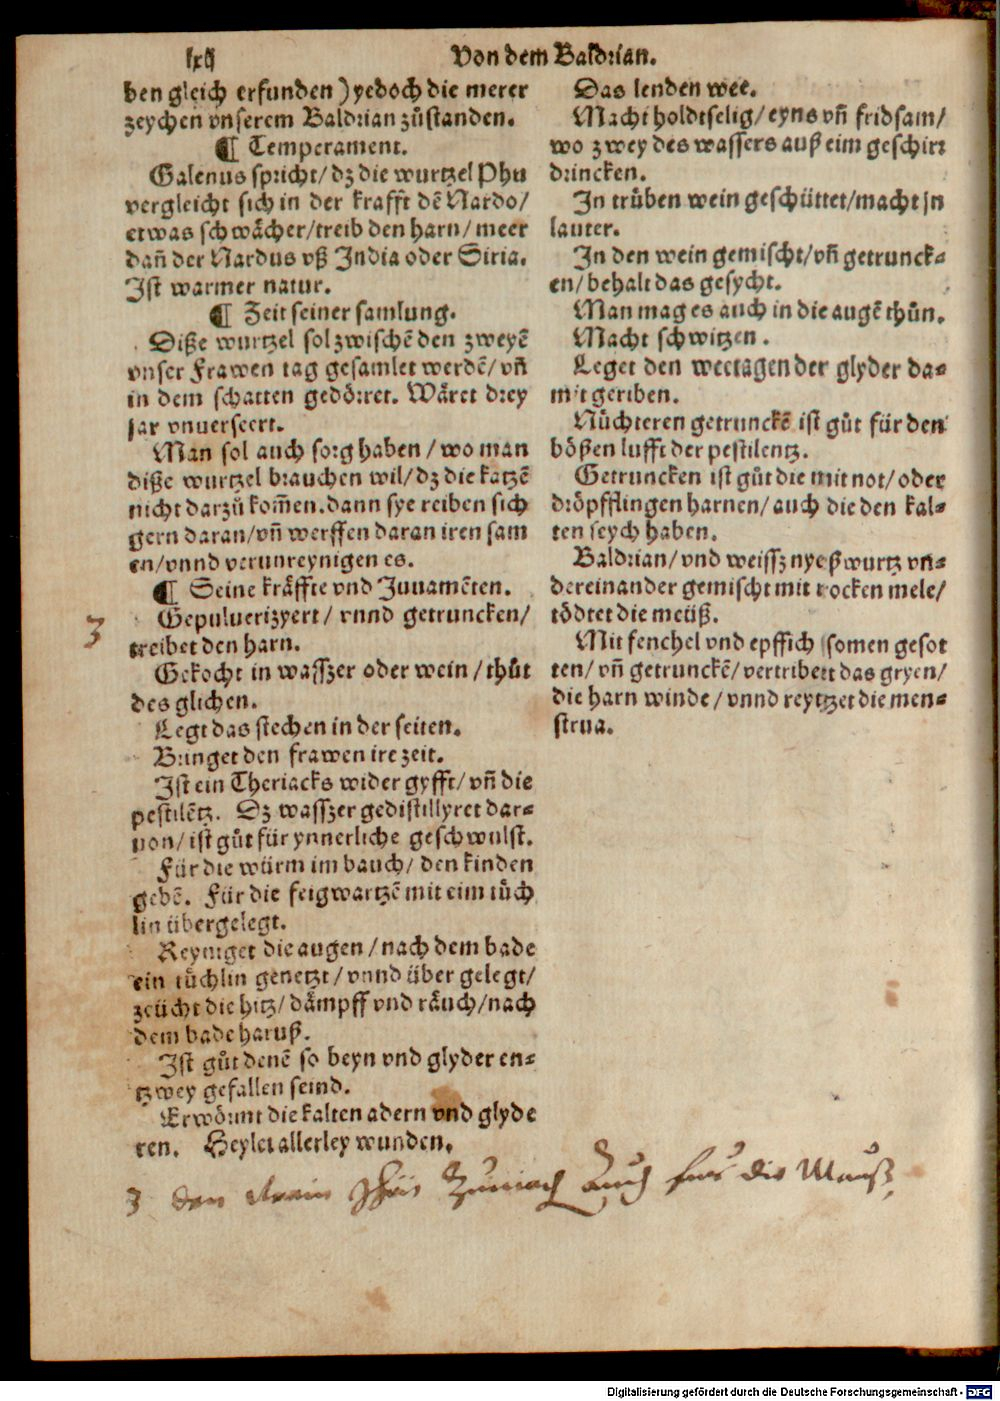 lxij
Von dem Baldrian.
ben gleich erfunden) yedoch die merer
zeychen vnserem Baldrian zůstanden.
¶ Temperament.
Galenus spricht/ dz die wurtzel Phu
vergleicht sich in der krafft dē Nardo/
etwas schwächer/treib den harn/ meer
dañ der Nardus vß India oder Siria.
Ist warmer natur.
¶ Zeit seiner samlung.
Diße wurtzel sol zwischē den zweyē
vnser Frawen tag gesamlet werdē/ vñ
in dem schatten gedörret. Wäret drey
jar vnuerseert.
Man sol auch sorg haben / wo man
diße wurtzel brauchen wil/ dz die katzē
nicht darzů kom̄en. dann sye reiben sich
gern daran/ vñ werffen daran iren sam
en/ vnnd verunreynigen es.
¶ Seine kräffte vnd Juuamēten.
3
Gepuluerizyert/ vnnd getruncken/
treibet den harn.
Gekocht in wasszer oder wein/ thůt
des glichen.
Legt das stechen in der seiten.
Bringet den frawen ire zeit.
Ist ein Theriacks wider gyfft/ vñ die
pestilētz. Dz wasszer gedistillyret dar⸗
uon/ ist gůt für ynnerliche geschwulst.
Für die würm im bauch/ den kinden
gebē. Für die feigwartzē mit eim tůch
lin übergelegt.
Reyniget die augen/ nach dem bade
ein tůchlin genetzt/ vnnd über gelegt/
zeücht die hitz/ dämpff vnd räuch/ nach
dem bade haruß.
Ist gůt denē so beyn vnd glyder en⸗
tzwey gefallen seind.
Erwörmt die kalten adern vnd glyde
ren. Heylet allerley wunden.
Das lenden wee.
Macht holdtselig/ eyns vñ fridsam/
wo zwey des wassers auß eim geschirr
drincken.
In trüben wein geschüttet/macht jn
lauter.
In den wein gemischt/ vñ getrunck⸗
en/ behalt das gesycht.
Man mag es auch in die augē thůn.
Macht schwitzen.
Leget den weetagen der glyder da⸗
mit geriben.
Nüchteren getrunckē ist gůt für den
bößen lufft der pestilentz.
Getruncken ist gůt die mit not/ oder
dröpfflingen harnen/ auch die den kal⸗
ten seych haben.
Baldrian/ vnd weissz nyeßwurtz vn⸗
dereinander gemischt mit rocken mele/
tödtet die meüß.
Mit fenchel vnd epffich somen gesot
ten/ vñ getrunckē/ vertribert das gryen/
die harn winde/ vnnd reytzet die men⸗
strua.
3 den auch fur die Meuß
Digitalisierung gefördert durch die Deutsche Forschungsgemeinschaft - DFG